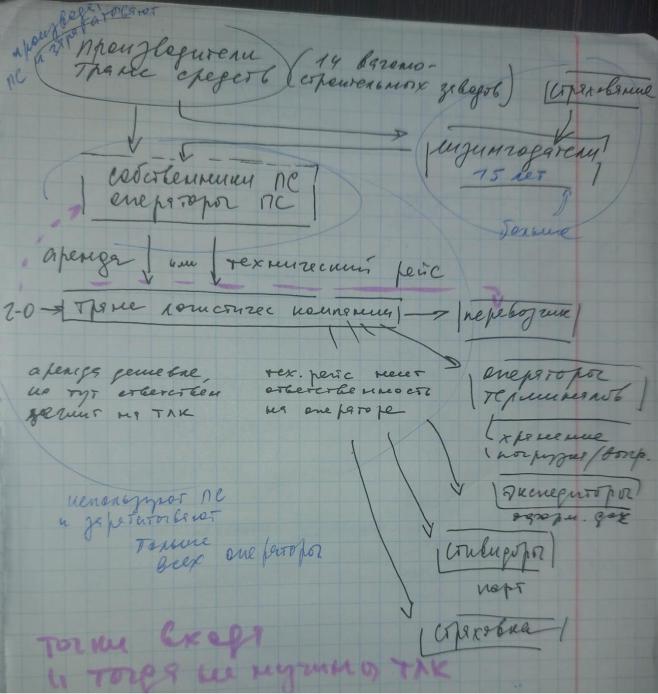 производят
ПС и зарабатывают
производители
транс средств
(14 вагоно-
строительных заводов)
страхование
лизингодатели
15 лет
больше
собственники ПС
операторы ПС
аренда или технический рейс
Г-О
транс логистичес компании
перевозчик
аренда дешевле,
но тут ответствен
лежит на ТЛК
тех. рейс несет
ответственность
на операторе
операторы
терминалов
хранение
погрузка/выгр.
экспедиторы
оформ. док
стивидоры
порт
страховка
используют ПС
и зарабатывают
больше
всех операторы
точки входа
и тогда не нужно ТЛК